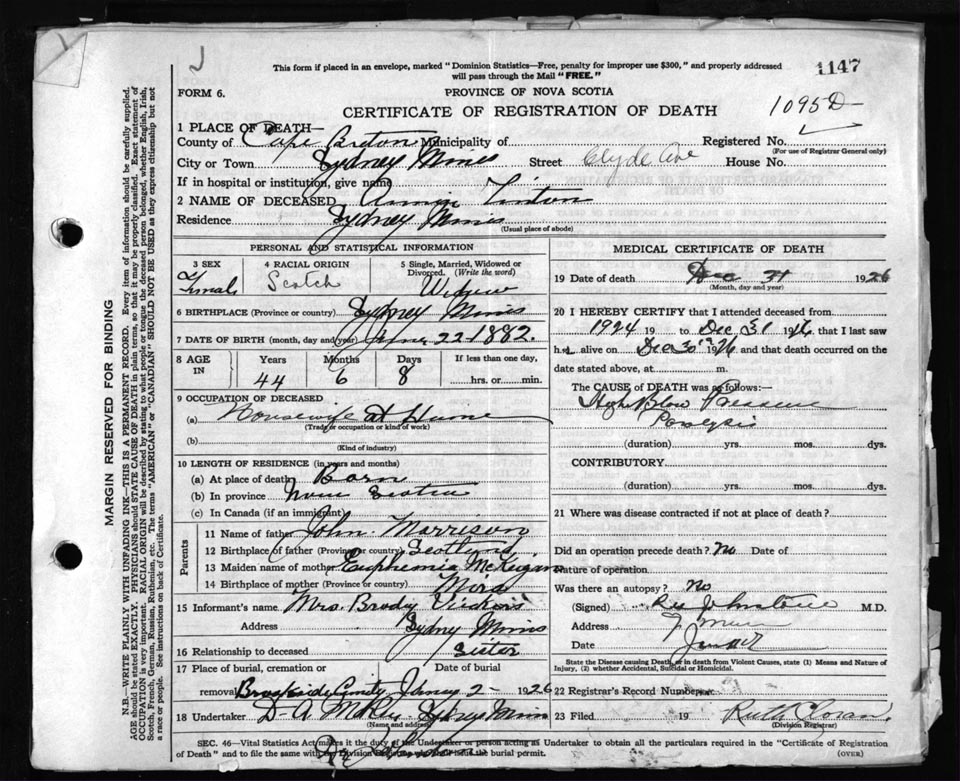 This form if placed in an envelope, marked "Dominion Statistics—Free, penalty for improper use $300," and properly addressed
will pass through the Mail "FREE."
1147
FORM 6.
PROVINCE OF NOVA SCOTIA
CERTIFICATE OF REGISTRATION OF DEATH
1095D-
1 PLACE OF DEATH—
County of Cape Breton Municipality of Registered No.
(For use of Registrar General only)
City or Town Sydney Mines Street Clyde Ave House No.
If in hospital or institution, give name
2 NAME OF DECEASED
Residence Sydney Mines
(Usual place of abode)
PERSONAL AND STATISTICAL INFORMATION
3 SEX Female
4 RACIAL ORIGIN Scotch
5 Single, Married, Widowed or Divorced. (Write the word) Widow
6 BIRTHPLACE (Province or country) Sydney Mines
7 DATE OF BIRTH (month, day and year) 22 1882.
8 AGE IN Years Months Days If less than one day,
44 6 8 hrs. or min.
9 OCCUPATION OF DECEASED
(a) Housewife at Home
(Trade or occupation or kind of work)
(b)
(Kind of industry)
10 LENGTH OF RESIDENCE (in years and months)
(a) At place of death Born
(b) In province Nova Scotia
(c) In Canada (if an immigrant)
Parents
11 Name of father John Morrison
12 Birthplace of father (Province or country) Scotland
13 Maiden name of mother Euphemia McKeigan
14 Birthplace of mother (Province or country) Mira
15 Informant's name Mrs. Brady
Address Sydney Mines
16 Relationship to deceased Sister
17 Place of burial, cremation or removal Date of burial
Brookside 2- 1926
18 Undertaker D A Sydney Mines
(Name and address)
MEDICAL CERTIFICATE OF DEATH
19 Date of death Dec 31 1926
(Month, day and year)
20 I HEREBY CERTIFY that I attended deceased from
1924 19 to Dec 31 1926, that I last saw
her alive on Dec 30th 1926 and that death occurred on the
date stated above, at m.
The CAUSE of DEATH was as follows:—
High Blood Pressure
Paralysis
(duration) yrs. mos. dys.
CONTRIBUTORY
(duration) yrs. mos. dys.
21 Where was disease contracted if not at place of death?
Did an operation precede death? No Date of
Nature of operation
Was there an autopsy? No
(Signed) Johnstone M.D.
Address
Date
State the Disease causing Death, or in death from Violent Causes, state (1) Means and Nature of
Injury, (2) whether Accidental, Suicidal or Homicidal.
22 Registrar's Record Number
23 Filed 19 Ruth
(Division Registrar)
SEC. 46—Vital Statistics Act makes it the duty of the Undertaker or person acting as Undertaker to obtain all the particulars required in the "Certificate of Registration
of Death" and to file the same with the Division Registrar and obtain the burial permit. (OVER)
MARGIN RESERVED FOR BINDING
N.B.—WRITE PLAINLY WITH UNFADING INK—THIS IS A PERMANENT RECORD. Every item of information should be carefully supplied.
AGE should be stated EXACTLY. PHYSICIANS should STATE CAUSE OF DEATH in plain terms, so that it may be properly classified. Exact statement of
OCCUPATION is very important. RACIAL ORIGIN will be described by stating to what people or tongue the deceased person belonged, whether English, Irish,
Scotch, French, German, Russian, Ruthenian, etc. The terms "AMERICAN" or "CANADIAN" SHOULD NOT BE USED as they express citizenship but not
a race or people. See instructions on back of Certificate.